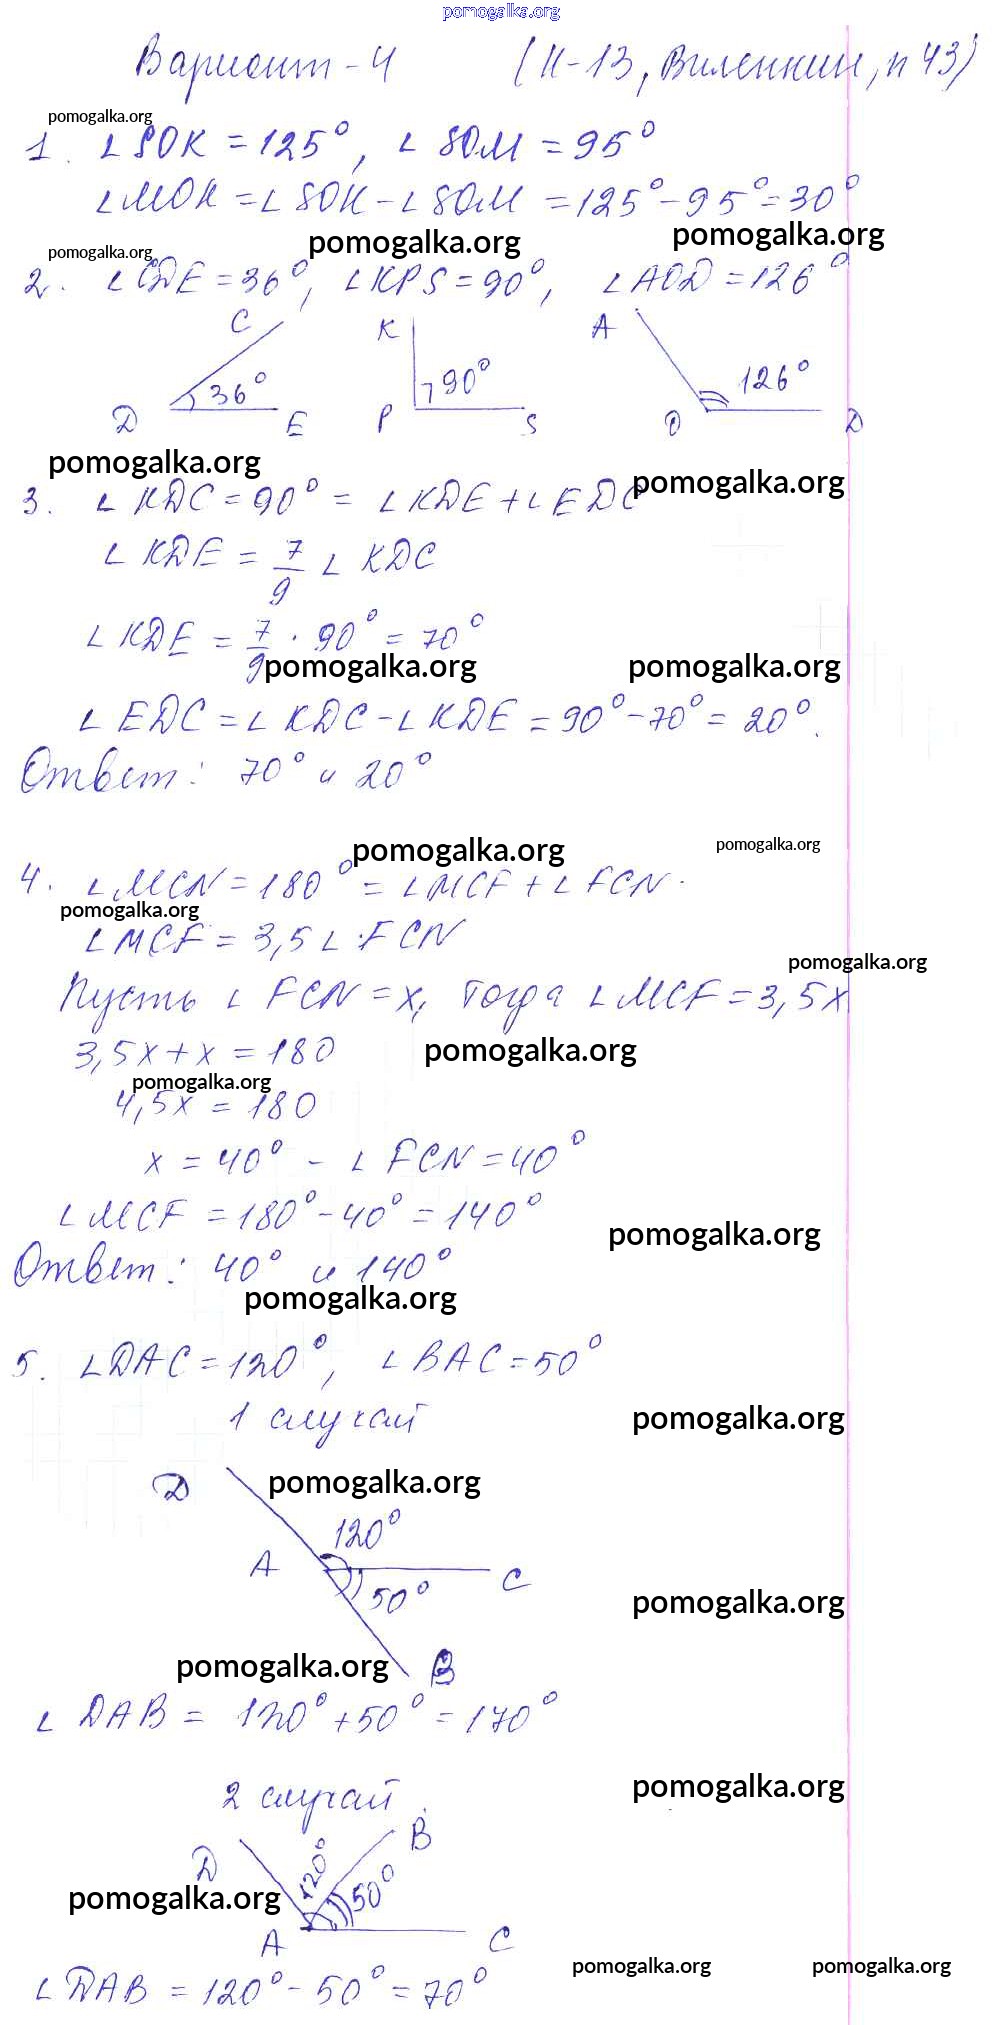 pomogalka.org
Вариант - 4 (К-13, Виленкин, п 43)
pomogalka.org
1. ∠SOK = 125°, ∠SOM = 95°
∠MOK = ∠SOK - ∠SOM = 125° - 95° = 30°
pomogalka.org pomogalka.org
pomogalka.org
2. ∠CDE = 36°, ∠KPS = 90°, ∠AOD = 126°
C K A
36° 90° 126°
D E P S O D
pomogalka.org pomogalka.org
3. ∠KDC = 90° = ∠KDE + ∠EDC
∠KDE = 7/9 ∠KDC
∠KDE = 7/9 · 90° = 70°
pomogalka.org pomogalka.org
∠EDC = ∠KDC - ∠KDE = 90° - 70° = 20°.
Ответ: 70° и 20°
pomogalka.org pomogalka.org
4. ∠MCN = 180° = ∠MCF + ∠FCN.
pomogalka.org
∠MCF = 3,5 ∠FCN
pomogalka.org
Пусть ∠FCN = x, тогда ∠MCF = 3,5x
3,5x + x = 180
pomogalka.org
pomogalka.org
4,5x = 180
x = 40° - ∠FCN = 40°
∠MCF = 180° - 40° = 140°
pomogalka.org
Ответ: 40° и 140°
pomogalka.org
5. ∠DAC = 120°, ∠BAC = 50°
1 случай
pomogalka.org
D pomogalka.org
120°
A C
50°
pomogalka.org
pomogalka.org B
∠DAB = 120° + 50° = 170°
2 случай
pomogalka.org
B
D 120° 50°
pomogalka.org
A C
pomogalka.org pomogalka.org
∠DAB = 120° - 50° = 70°